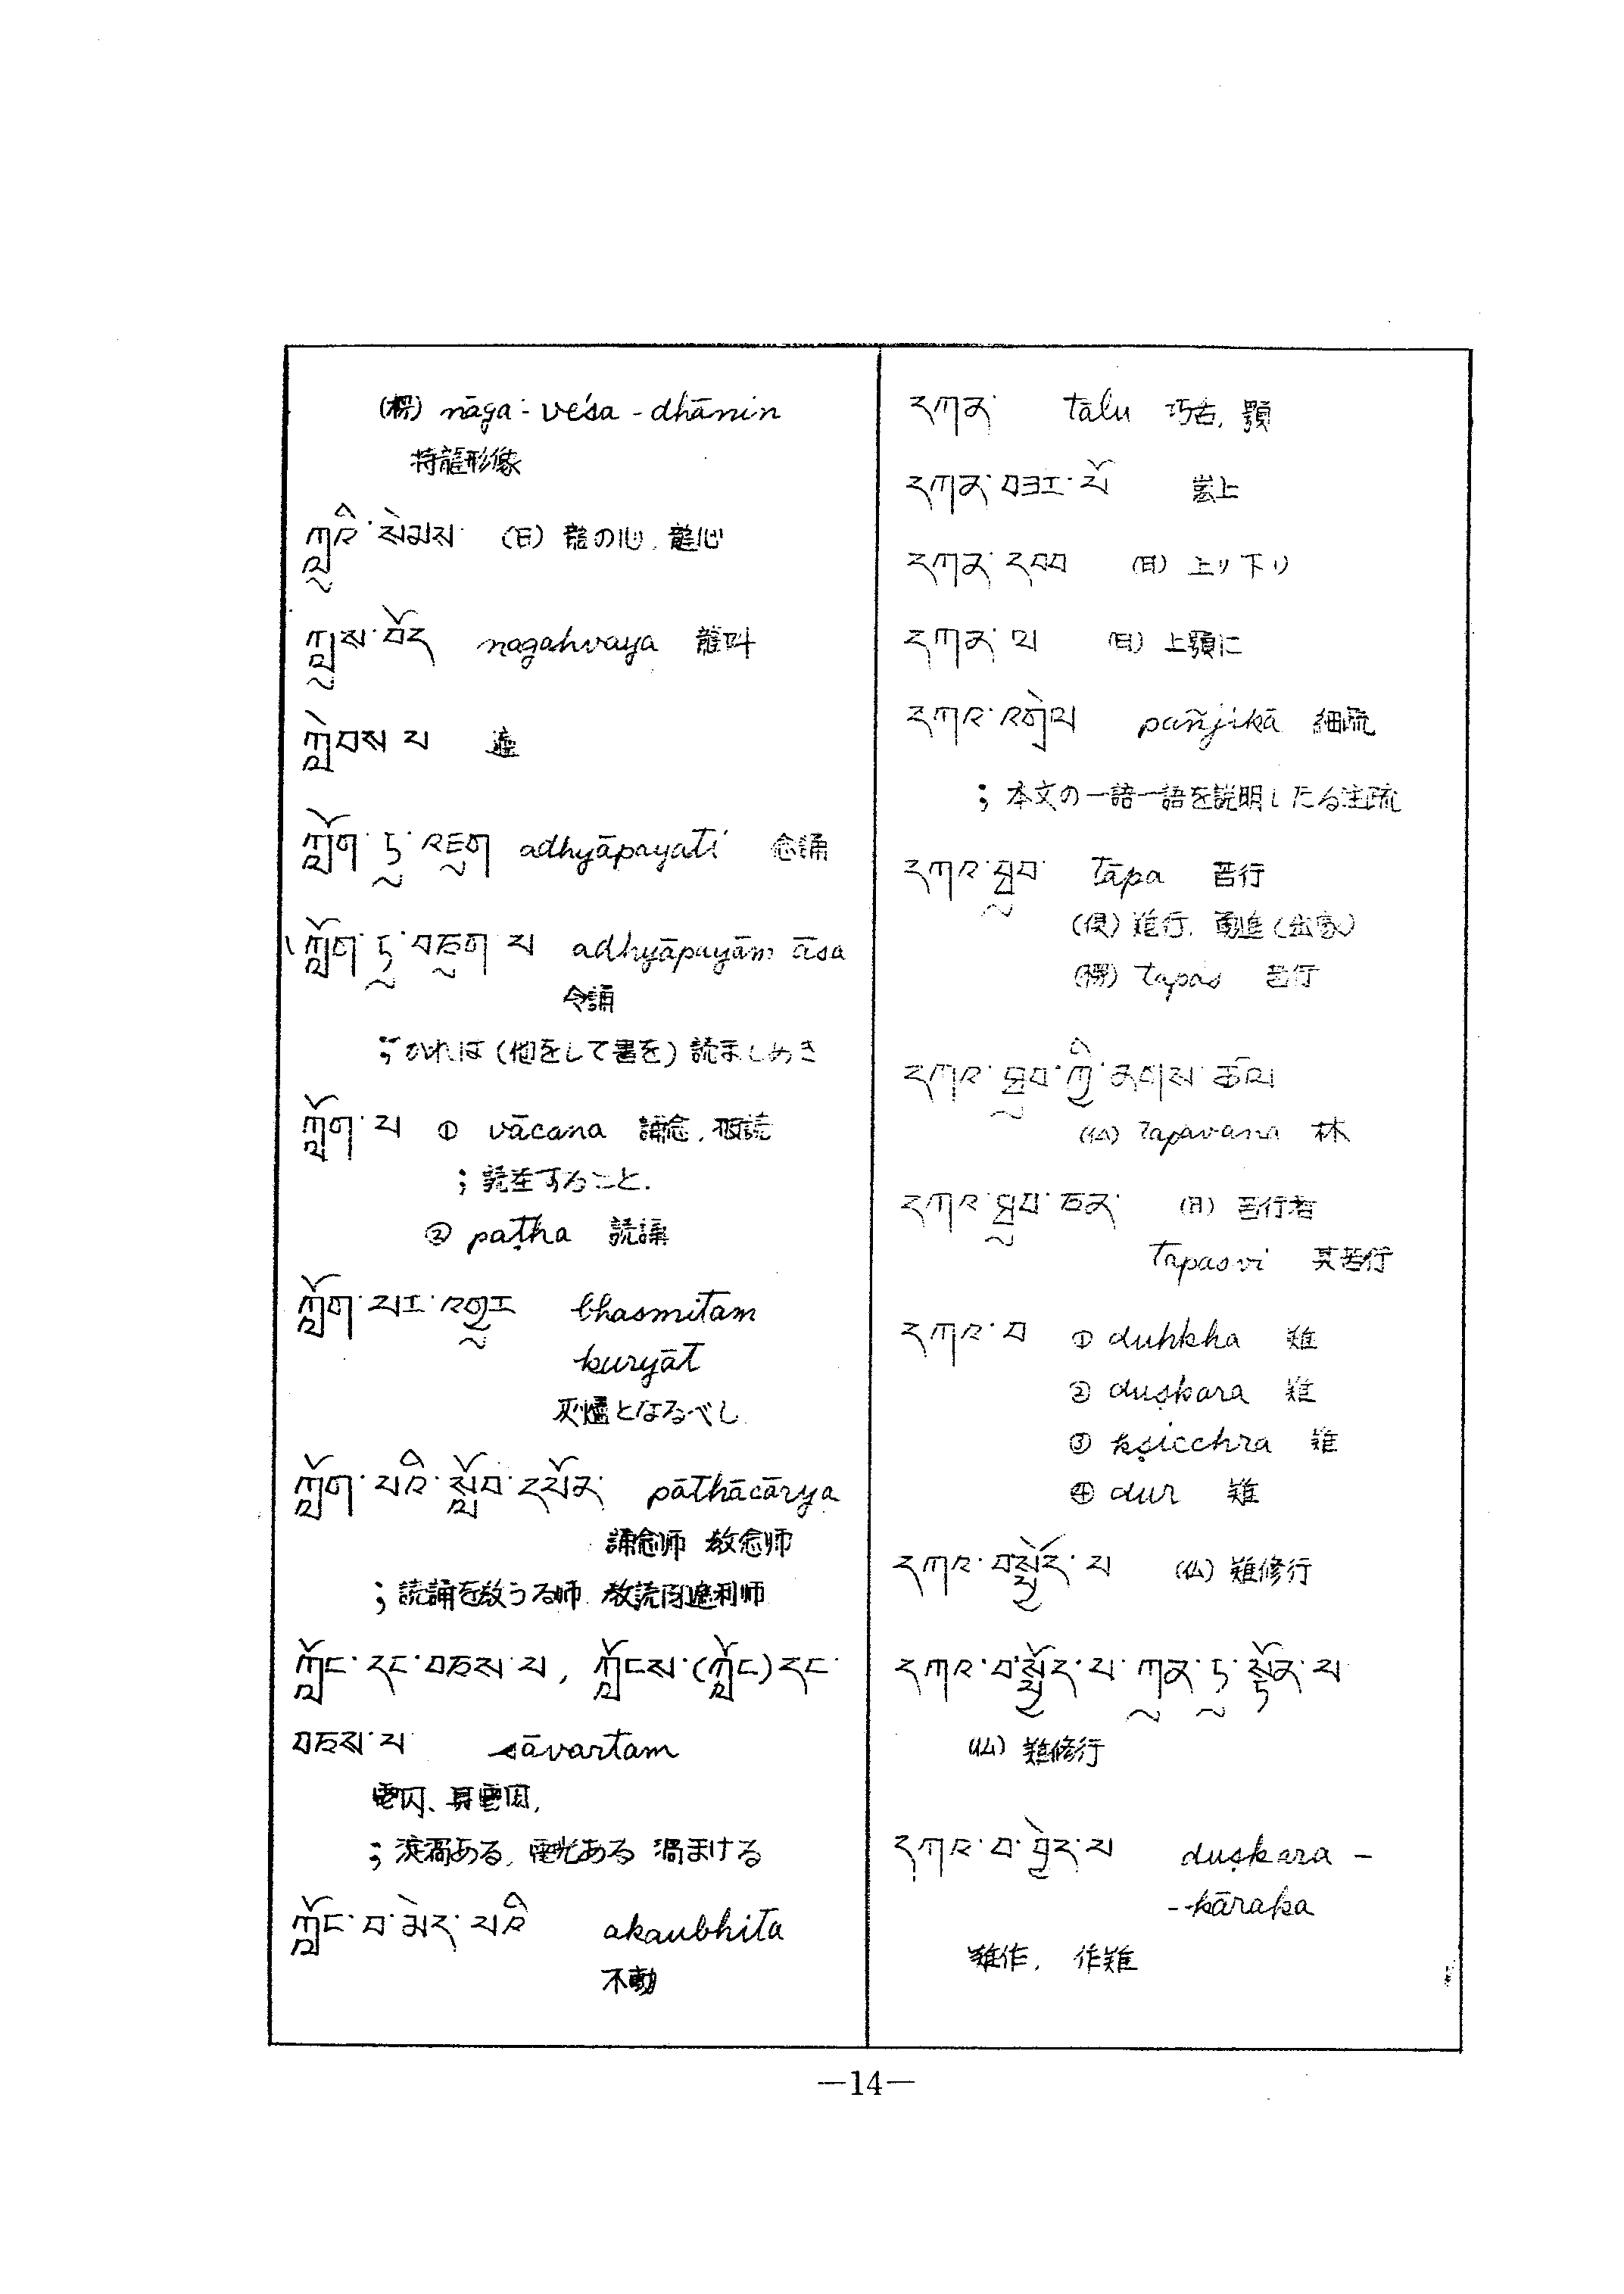 (楞) nāga-veśa-dhānin
持龍形像
ཀླུའི་སེམས (日) 龍の心, 龍心
ཀླུས་བོད nagahvaya 龍叫
ཀླེབས པ
ཀློག་ཏུ་འཇུག adhyāpayati 念誦
ཀློག་ཏུ་བཅུག པ adhyāpayām āsa
令誦
; かれは (他をして書を) 読ましめき
ཀློག་པ ① vācana 誦念,
; 読むこと.
② paṭha 読誦
ཀློག་པར་འགྱུར bhasmitam
kuryāt
灰燼となるべし
ཀློག་པའི་སློབ་དཔོན་ pāthācārya
誦念师 教念师
; 読誦を教うる师 教読阿遮利师
ཀློང་དང་བཅས་པ, ཀློངས་(ཀློང)དང་
བཅས་པ sāvartam
; 渦ある, 電光ある 渦まける
ཀློང་བ་མེད་པའི akaubhita
不動
དཀན་ tālu
དཀན་བཟང་པོ
དཀན་དབབ (日) 上り下り
དཀན་ལ (日) 上顎に
དཀའ་འགྲེལ pañjikā 細疏
; 本文の一語一語を説明したる注疏
དཀའ་ཐུབ་ Tāpa 苦行
(倶) 難行, 勤進 (出家)
(楞) tapas 苦行
དཀའ་ཐུབ་ཀྱི་ནགས་ཚལ
(仏) Tapavana 林
དཀའ་ཐུབ་ཅན་ (日) 苦行者
Tapasvi 其苦行
དཀའ་བ ① duhkha 難
② duṣkara 難
③ kṣicchra 難
④ dur 難
དཀའ་བ་སྤྱོད་པ (仏) 難修行
དཀའ་བ་སྤྱོད་པ་ཀུན་ཏུ་སྟོན་པ
(仏) 難修行
དཀའ་བ་བྱེད་པ duṣkara -
-kāraka
難作, 作難
—14—